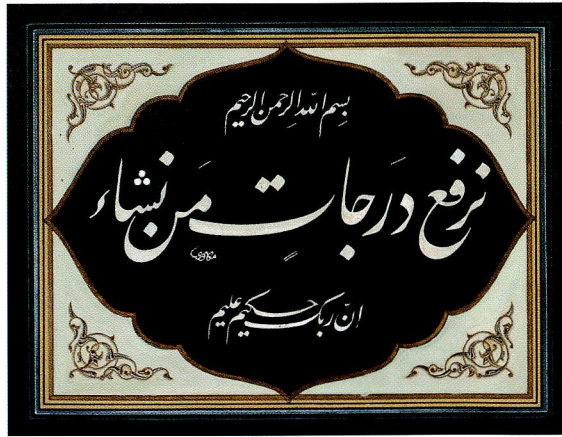 بِسْمِ اللّهِ الرَّحْمنِ الرَّحيمِ
نرفع دَرَجاتٍ مَن نشاء
انّ ربك حكيم عليم